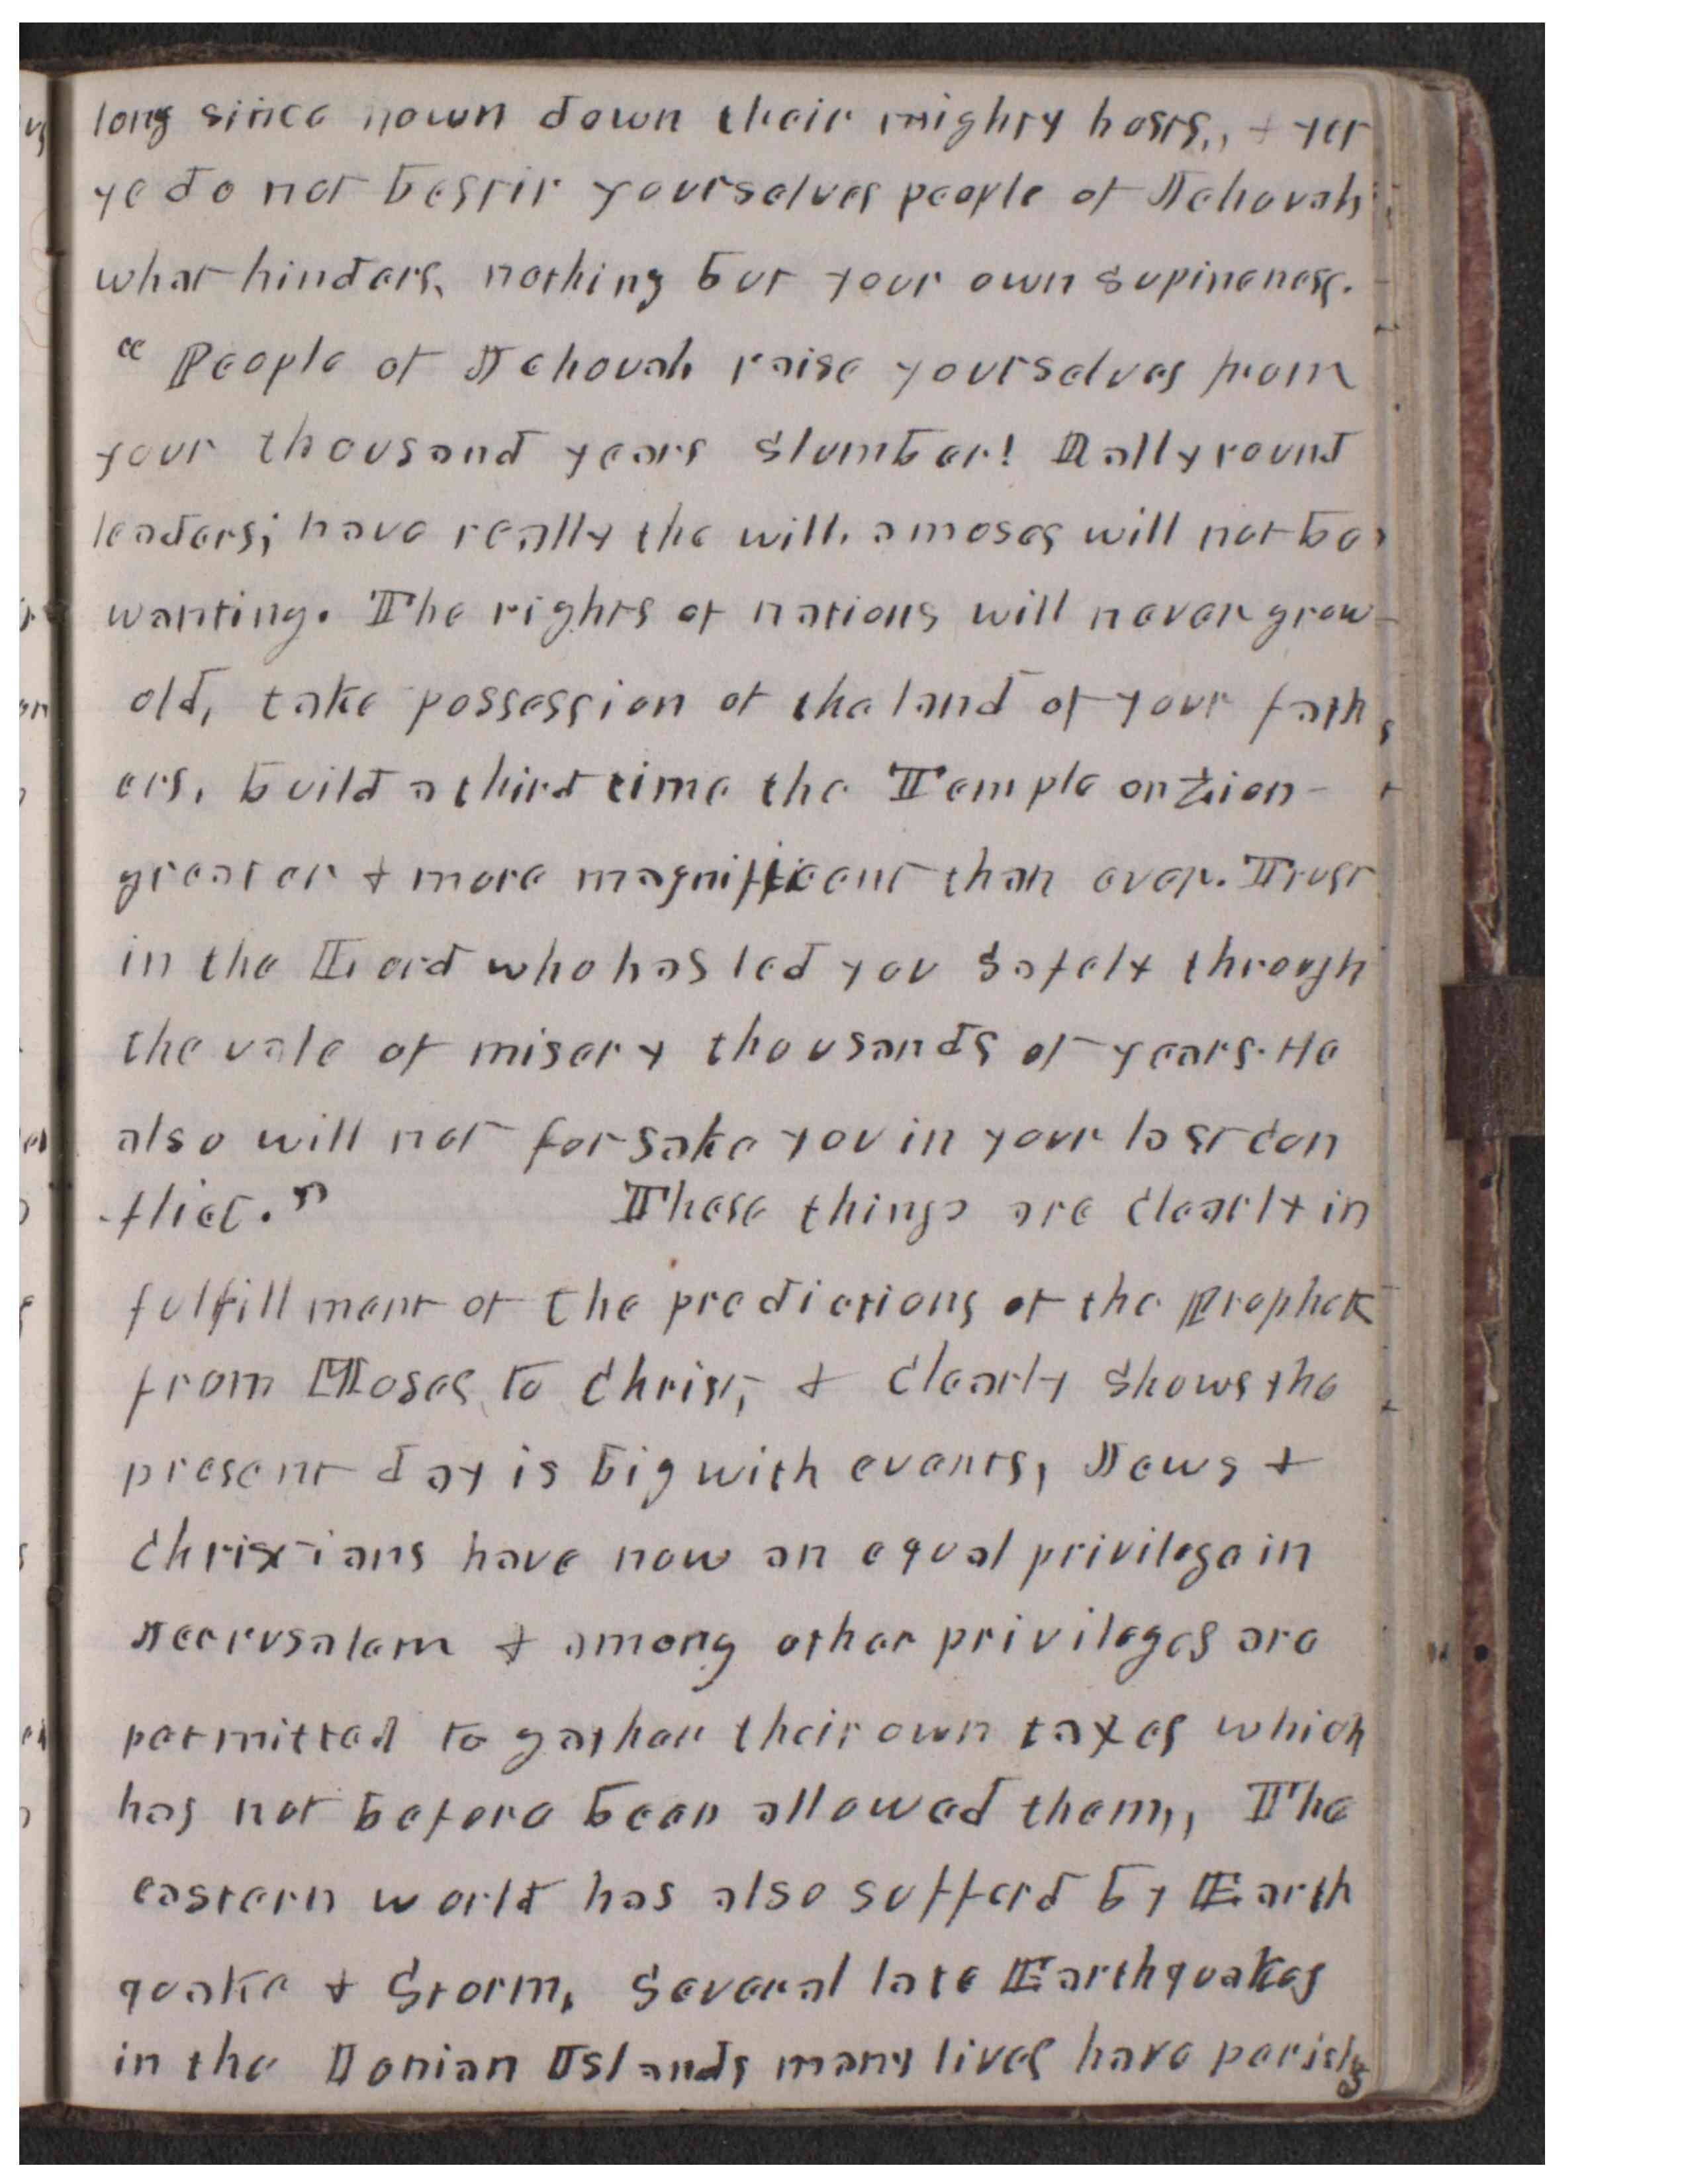 long since nown down their mighty hosts,, + yet
ye do not bestir yourselves people of Jehovah
what hinders, nothing but your own supineness.
"People of Jehovah raise yourselves from
your thousand years slumber! Rally round
leaders; have really the will. a moses will not be
wanting. The rights of nations will never grow
old, take possession of the land of your fath
ers, build a third time the Temple on Zion-
greater + more magnificent than ever. Trust
in the Lord who has led you safely through
the vale of misery thousands of years. He
also will not forsake you in your last con
flict." These things are clearly in
fulfillment of the predictions of the Prophets
from Moses, to Christ, + clearly shows the
present day is big with events, Jews +
Christians have now an equal privilege in
Jeerusalem + among other privileges are
permitted to gather their own taxes which
has not before been allowed them, The
eastern world has also sufferd by Earth
quake + Storm, Several late Earthquakes
in the Ionian Islands many lives have perish